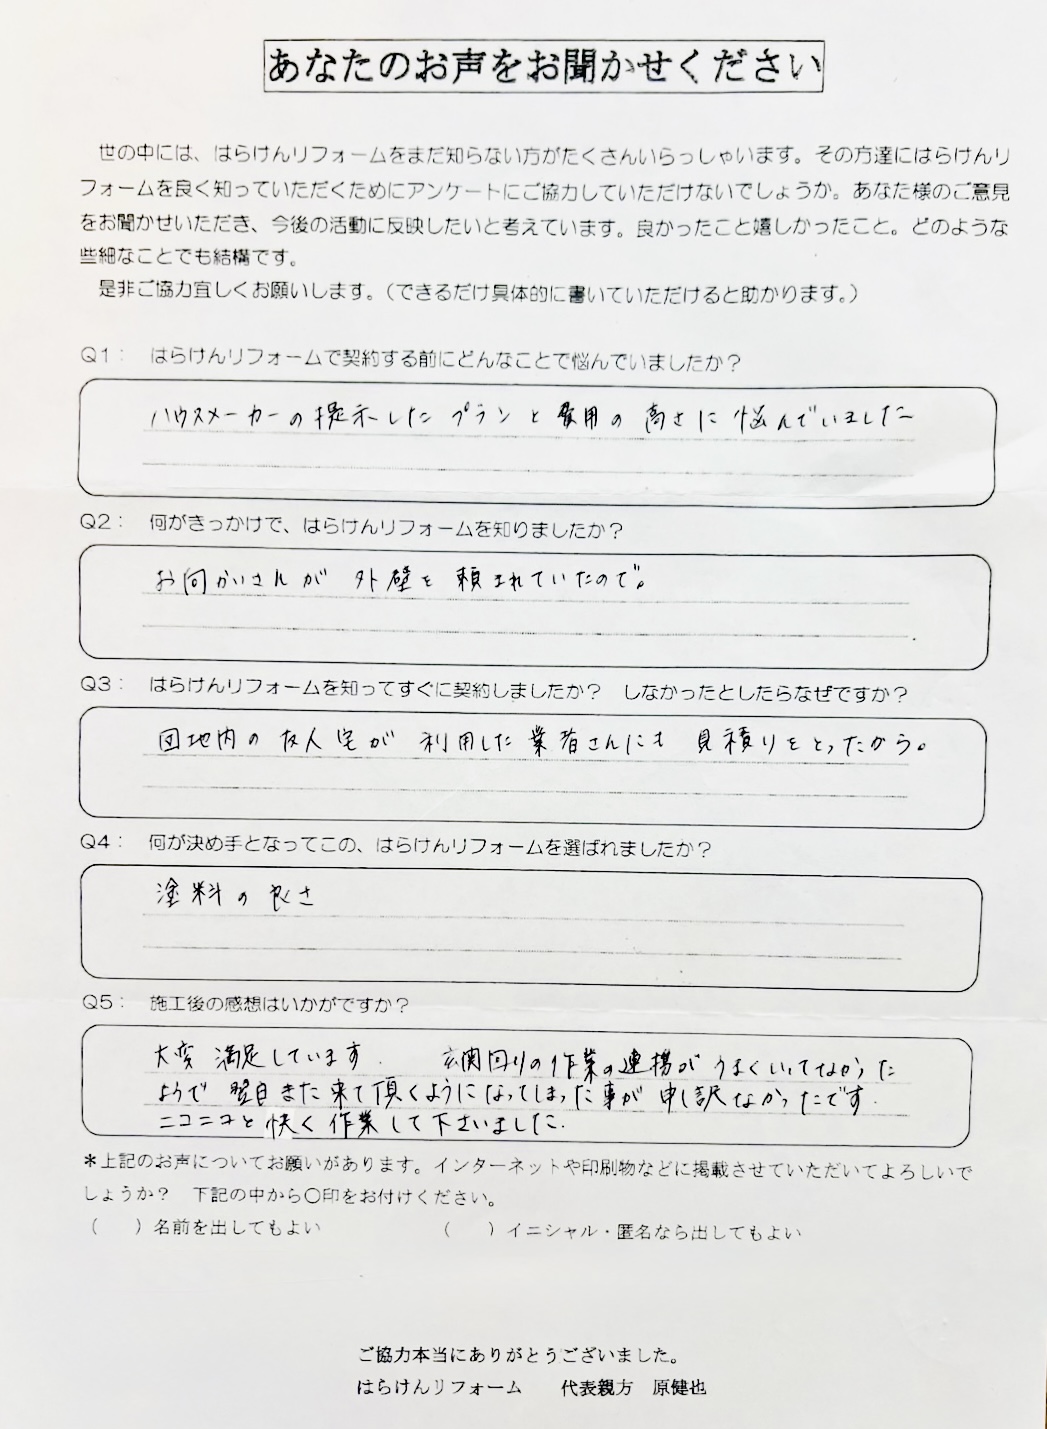 あなたのお声をお聞かせください
世の中には、はらけんリフォームをまだ知らない方がたくさんいらっしゃいます。その方達にはらけんリ
フォームを良く知っていただくためにアンケートにご協力していただけないでしょうか。あなた様のご意見
をお聞かせいただき、今後の活動に反映したいと考えています。良かったこと嬉しかったこと。どのような
些細なことでも結構です。
是非ご協力宜しくお願いします。（できるだけ具体的に書いていただけると助かります。）
Q1： はらけんリフォームで契約する前にどんなことで悩んでいましたか？
ハウスメーカーの提示したプランと費用の高さに悩んでいました
Q2： 何がきっかけで、はらけんリフォームを知りましたか？
お向かいさんが 外壁を頼まれていたので。
Q3： はらけんリフォームを知ってすぐに契約しましたか？ しなかったとしたらなぜですか？
団地内の友人宅が 利用した業者さんにも 見積りをとったから。
Q4： 何が決め手となってこの、はらけんリフォームを選ばれましたか？
塗料の良さ
Q5： 施工後の感想はいかがですか？
大変満足しています． 玄関回りの作業の連携がうまくいってなかった
ようで 翌日また来て頂くようになってしまった事が申し訳なかったです．
ニコニコと快く作業して下さいました．
＊上記のお声についてお願いがあります。インターネットや印刷物などに掲載させていただいてよろしいで
しょうか？ 下記の中から〇印をお付けください。
（ ）名前を出してもよい （ ）イニシャル・匿名なら出してもよい
ご協力本当にありがとうございました。
はらけんリフォーム 代表親方 原健也